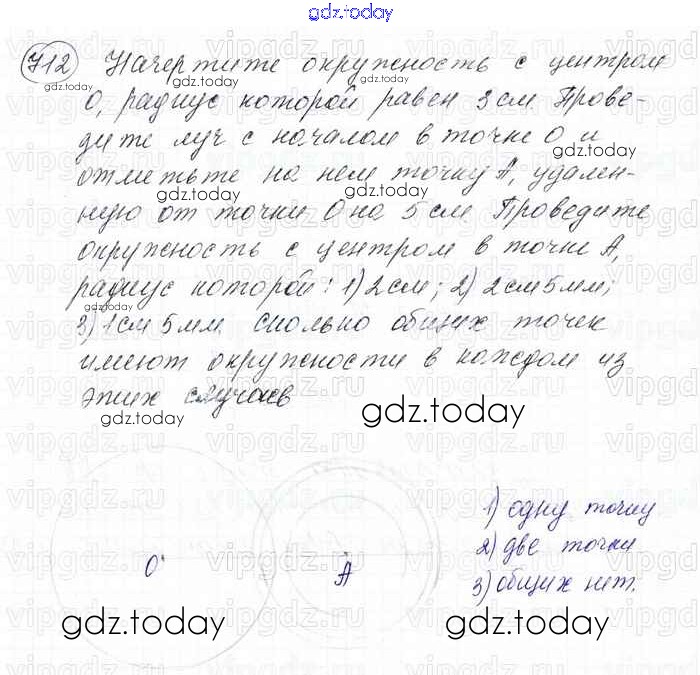 gdz.today
712 Начертите окружность с центром
О, радиус которой равен 3 см. Прове-
дите луч с началом в точке О и
отметьте на нем точку А, удален-
ную от точки О на 5 см. Проведите
окружность с центром в точке А,
радиус которой: 1) 2 см; 2) 2 см 5 мм;
3) 1 см 5 мм. Сколько общих точек
имеют окружности в каждом из
этих случаев
gdz.today
О А
1) одну точку
2) две точки
3) общих нет.
gdz.today gdz.today